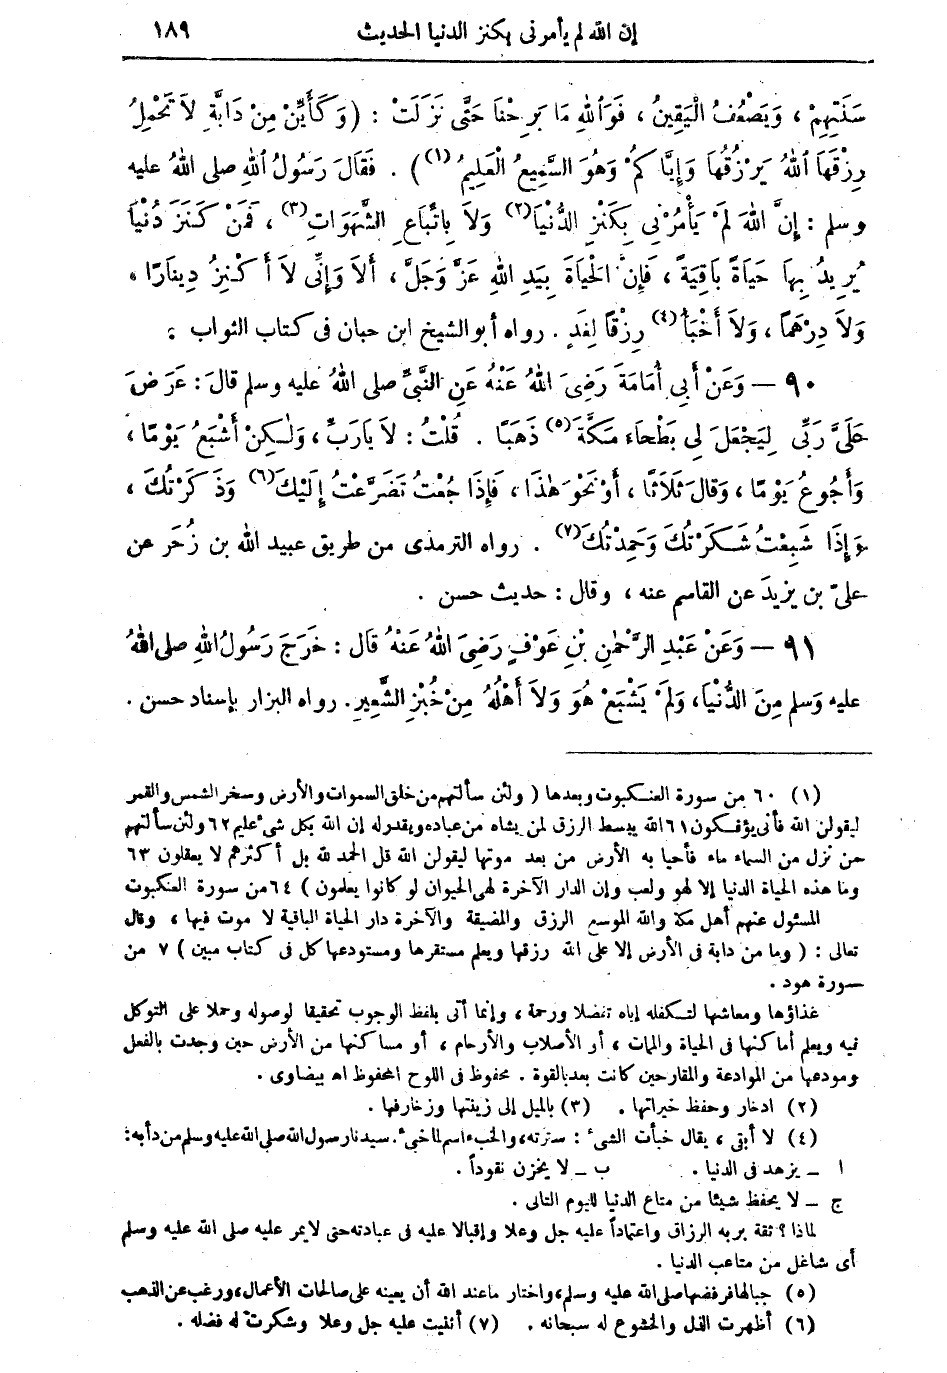 إن الله لم يأمرنى بكنز الدنيا الحديث ١٨٩
سَنَتِهِمْ ، وَيَضْعُفُ الْيَقِينُ ، فَوَاللهِ مَا بَرِحْنَا حَتَّى نَزَلَتْ : (وَكَأَيِّنْ مِنْ دَابَّةٍ لاَ تَحْمِلُ
رِزْقَهَا اللهُ يَرْزُقُهَا وَإِيَّاكُمْ وَهُوَ السَّمِيعُ الْعَلِيمُ (١)) . فَقَالَ رَسُولُ اللهِ صلى اللهُ عليه
وسلم : إِنَّ اللهَ لَمْ يَأْمُرْنِي بِكَنْزِ الدُّنْيَا(٢) وَلاَ بِاتِّبَاعِ الشَّهَوَاتِ(٣) ، فَمَنْ كَنَزَ دُنْيَا
يُرِيدُ بِهَا حَيَاةً بَاقِيَةً ، فَإِنَّ الْحَيَاةَ بِيَدِ اللهِ عَزَّ وَجَلَّ ، أَلاَ وَإِنِّى لاَ أَكْنِزُ دِينَارًا ،
وَلاَ دِرْهَمًا ، وَلاَ أَخْبَأُ(٤) رِزْقًا لِغَدٍ . رواه أبو الشيخ ابن حبان فى كتاب الثواب :
٩٠ — وَعَنْ أَبِي أُمَامَةَ رَضِىَ اللهُ عَنْهُ عَنِ النَّبِيِّ صلى اللهُ عليه وسلم قَالَ : عَرَضَ
عَلَىَّ رَبِّى لِيَجْعَلَ لِى بَطْحَاء مَكَّةَ(٥) ذَهَبًا . قُلْتُ : لاَ يَارَبِّ ، وَلٰكِنْ أَشْبَعُ يَوْمًا ،
وَأَجُوعُ يَوْمًا ، وَقَالَ ثَلاَثًا ، أَوْ نَحْوَ هٰذَا ، فَإِذَا جُعْتُ تَضَرَّعْتُ إِلَيْكَ(٦) وَذَكَرْتُكَ ،
وَإِذَا شَبِعْتُ شَكَرْتُكَ وَحَمِدْتُكَ(٧) . رواه الترمذى من طريق عبيد الله بن زُحَر عن
علىّ بن يزيدَ عن القاسم عنه ، وقال : حديث حسن .
٩١ — وَعَنْ عَبْدِ الرَّحْمٰنِ بْنِ عَوْفٍ رَضِىَ اللهُ عَنْهُ قَالَ : خَرَجَ رَسُولُ اللهِ صلى اللهُ
عليه وَسلم مِنَ الدُّنْيَا، وَلَمْ يَشْبَعْ هُوَ وَلاَ أَهْلُهُ مِنْ خُبْزِ الشَّعِيرِ. رواه البزار بإسناد حسن .
(١) ٦٠ من سورة العنكبوت وبعدها ( ولئن سألتهم من خلق السموات والأرض وسخر الشمس والقمر
ليقولن الله فأنى يؤفكون ٦١ الله يبسط الرزق لمن يشاء من عباده ويقدر له إن الله بكل شىء عليم ٦٢ ولئن سألتهم
من نزل من السماء ماء فأحيا به الأرض من بعد موتها ليقولن الله قل الحمد لله بل أكثرهم لا يعقلون ٦٣
وما هذه الحياة الدنيا إلا لهو ولعب وإن الدار الآخرة لهى الحيوان لو كانوا يعلمون ) ٦٤ من سورة العنكبوت
المسئول عنهم أهل مكة والله الموسع الرزق والمضيقة والآخرة دار الحياة الباقية لا موت فيها ، وقال
تعالى : ( وما من دابة فى الأرض إلا على الله رزقها ويعلم مستقرها ومستودعها كل فى كتاب مبين ) ٧ من
سورة هود .
غذاؤها ومعاشها لتكفله إياه تفضلا ورحمة ، وإنما أتى بلفظ الوجوب تحقيقا لوصوله وحملا على التوكل
فيه ويعلم أماكنها فى الحياة والممات ، أو الأصلاب والأرحام ، أو مساكنها من الأرض حين وجدت بالفعل
ومودعها من الموادعة والمقارحين كانت بعد بالقوة . محفوظ فى اللوح المحفوظ اه بيضاوى .
(٢) ادخار وحفظ خيراتها . (٣) بالميل إلى زينتها وزخارفها .
(٤) لا أبقى ، يقال خبأت الشىء : سترته، والخبء اسم لما خبىء. سيدنا رسول الله صلى الله عليه وسلم من دأبه:
ا ــ يزهد فى الدنيا . ب ــ لا يخزن نقوداً .
ج ــ لا يحفظ شيئا من متاع الدنيا لليوم التالى .
لماذا ؟ ثقة بربه الرزاق واعتماداً عليه جل وعلا وإقبالا عليه فى عبادته حتى لا يمر عليه صلى الله عليه وسلم
أى شاغل من متاعب الدنيا .
(٥) جبالها فرفضها صلى الله عليه وسلم، واختار ما عند الله أن يعينه على صالحات الأعمال، ورغب عن الذهب
(٦) أظهرت الذل والخشوع له سبحانه . (٧) أثنيت عليه جل وعلا وشكرت له فضله .